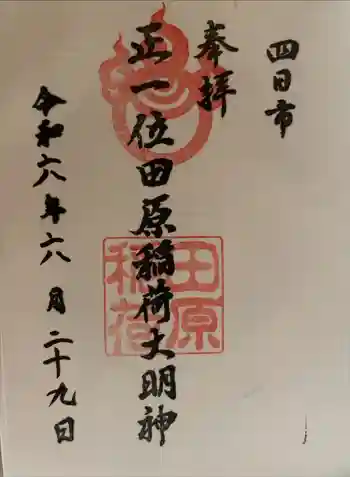 四日市
奉拝
正一位田原稲荷大明神
田原
稲荷
令和六年六八月二十九日